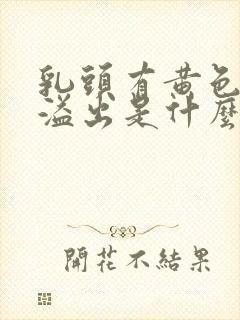 乳頭有黃色
溢出是什麼
開花不結果